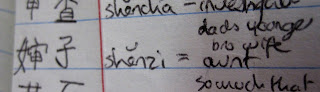 审查 shěnchá - investigate
dads younger
bro wife
婶子 shěnzi = aunt
so much that